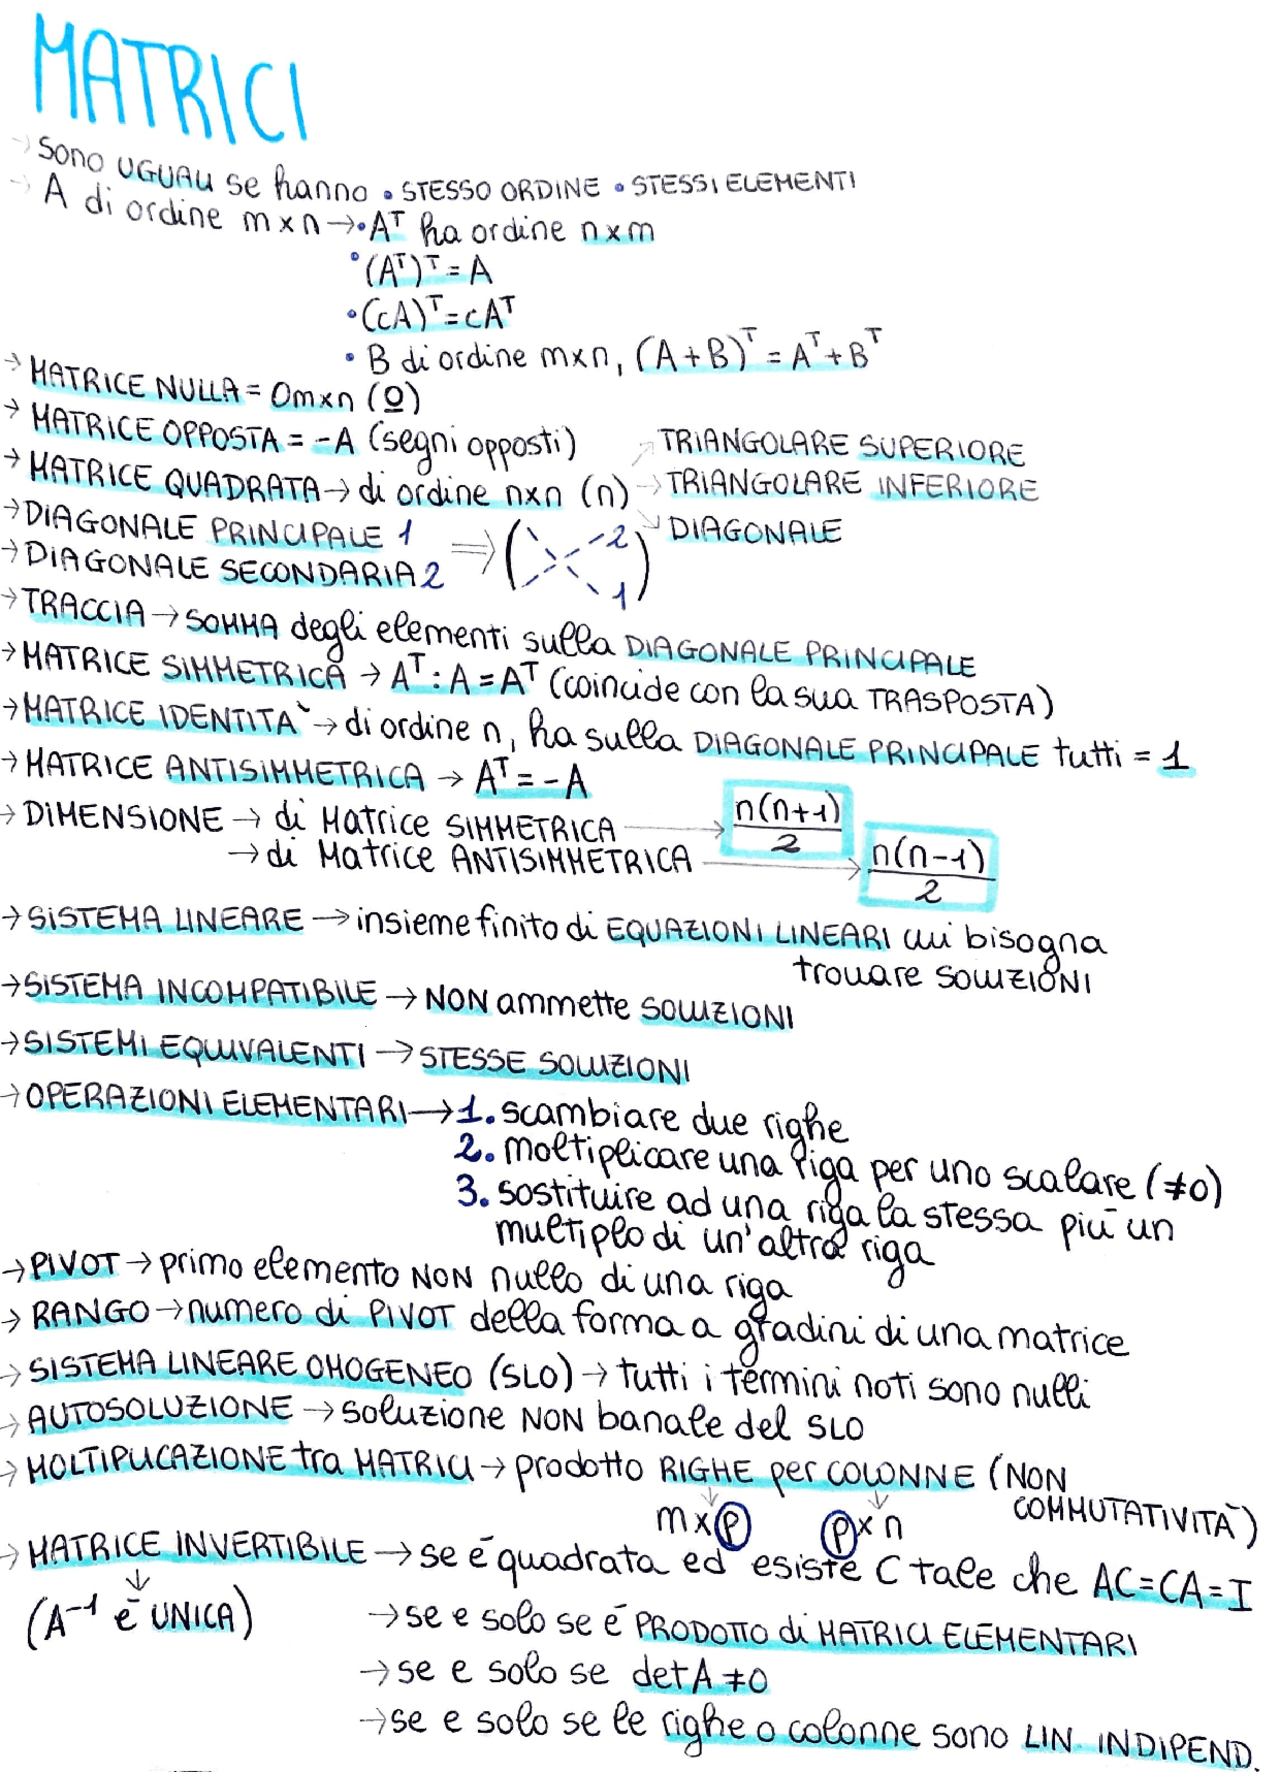 MATRICI
→ Sono UGUALI se hanno • STESSO ORDINE • STESSI ELEMENTI
→ A di ordine m×n → • Aᵀ ha ordine n×m
• (Aᵀ)ᵀ = A
• (cA)ᵀ = cAᵀ
• B di ordine m×n, (A+B)ᵀ = Aᵀ + Bᵀ
→ MATRICE NULLA = 0m×n (0)
→ MATRICE OPPOSTA = -A (segni opposti)
→ MATRICE QUADRATA → di ordine n×n (n) → TRIANGOLARE SUPERIORE
→ TRIANGOLARE INFERIORE
→ DIAGONALE
→ DIAGONALE PRINCIPALE 1
→ DIAGONALE SECONDARIA 2 ⇒ ( 2 1 )
→ TRACCIA → SOMMA degli elementi sulla DIAGONALE PRINCIPALE
→ MATRICE SIMMETRICA → Aᵀ : A = Aᵀ (coincide con la sua TRASPOSTA)
→ MATRICE IDENTITA` → di ordine n, ha sulla DIAGONALE PRINCIPALE tutti = 1
→ MATRICE ANTISIMMETRICA → Aᵀ = -A
→ DIMENSIONE → di Matrice SIMMETRICA → n(n+1)/2
→ di Matrice ANTISIMMETRICA → n(n-1)/2
→ SISTEMA LINEARE → insieme finito di EQUAZIONI LINEARI cui bisogna
trovare soluzioni
→ SISTEMA INCOMPATIBILE → NON ammette SOLUZIONI
→ SISTEMI EQUIVALENTI → STESSE SOLUZIONI
→ OPERAZIONI ELEMENTARI → 1. scambiare due righe
2. moltiplicare una riga per uno scalare (≠0)
3. sostituire ad una riga la stessa più un
multiplo di un'altra riga
→ PIVOT → primo elemento NON nullo di una riga
→ RANGO → numero di PIVOT della forma a gradini di una matrice
→ SISTEMA LINEARE OMOGENEO (SLO) → tutti i termini noti sono nulli
→ AUTOSOLUZIONE → soluzione NON banale del SLO
→ MOLTIPLICAZIONE tra MATRICI → prodotto RIGHE per COLONNE (NON
COMMUTATIVITÀ)
m×p p×n
→ MATRICE INVERTIBILE → se è quadrata ed esiste C tale che AC=CA=I
(A⁻¹ è UNICA) → se e solo se è PRODOTTO di MATRICI ELEMENTARI
→ se e solo se det A ≠0
→ se e solo se le righe o colonne sono LIN. INDIPEND.